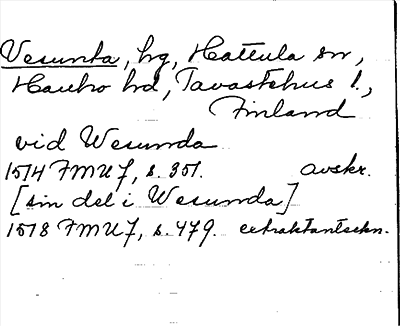 Vesunta, hg, Hattula sn,
Hauho hd, Tavastehus l.,
Finland
vid Wesunda
1514 FMU 7, s. 351. avskr.
[sin del i Wesunda]
1518 FMU 7, s. 479. extraktanteckn.